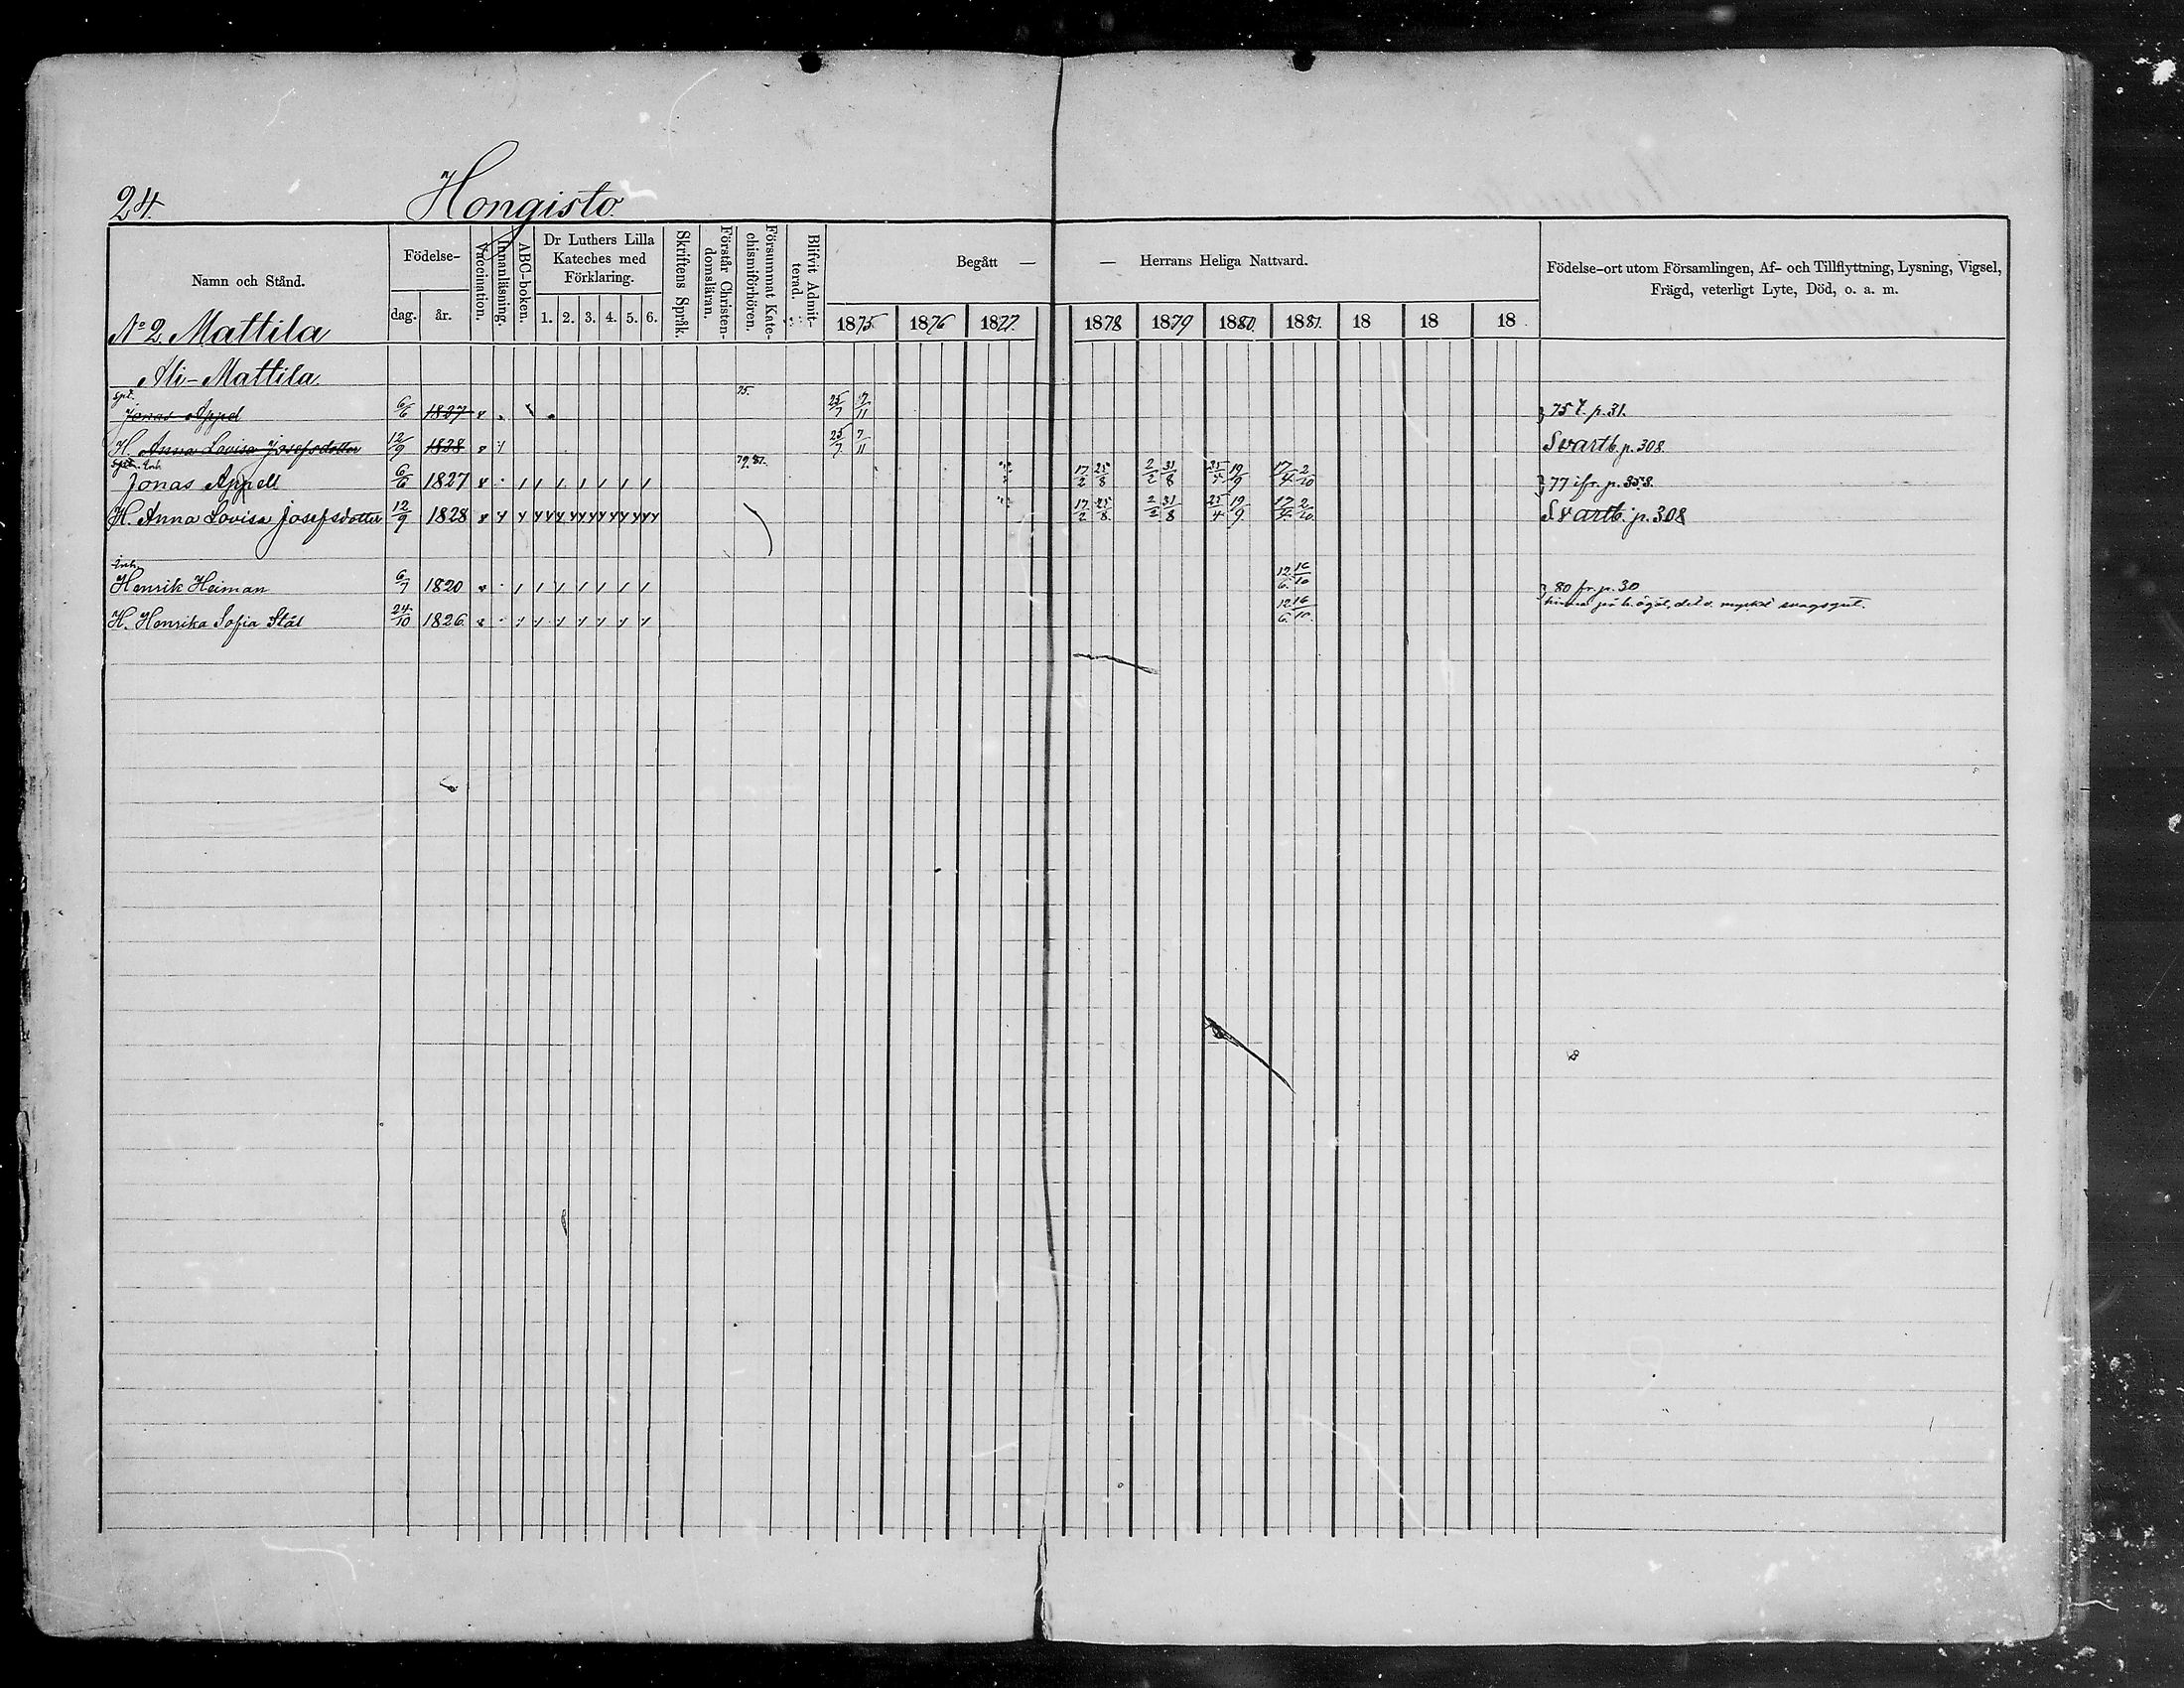 24.
Hongisto
Namn och Stånd.
Födelse-
dag.
år.
Vaccination.
Innanläsning.
ABC-boken.
Dr Luthers Lilla
Kateches med
Förklaring.
1. 2. 3. 4. 5. 6.
Skriftens Språk.
Förstår Christen-
domsläran.
Försummat Kate-
chismiförhören.
Blifvit Admit-
terad.
Begått — — Herrans Heliga Nattvard.
1875 1876 1877. 1878 1879 1880. 1881. 18 18 18
Födelse-ort utom Församlingen, Af- och Tillflyttning, Lysning, Vigsel,
Frägd, veterligt Lyte, Död, o. a. m.
No 2 Mattila
Ali-Mattila
Jonas Appel 6/6 1827 75. 25/7 7/11 75 t. p. 31.
H. Anna Lovisa Josefsdotter 12/9 1828 25/7 7/11 Svartb. p. 308.
Jonas Appell 6/6 1827 79. 81. 17/2 25/8 2/2 31/8 25/ 19/9 17/4 2/10 77 ifr. p. 358.
H. Anna Lovisa Josefsdotter 12/9 1828 17/2 25/8 2/2 31/8 25/4 19/9 17/4 2/10 Svartb. p. 308
Inh.
Henrik Heiman 6/7 1820 12/6 16/10 80 fr. p. 30
H. Henrika Sofia Stål 24/10 1826 12/6 16/10